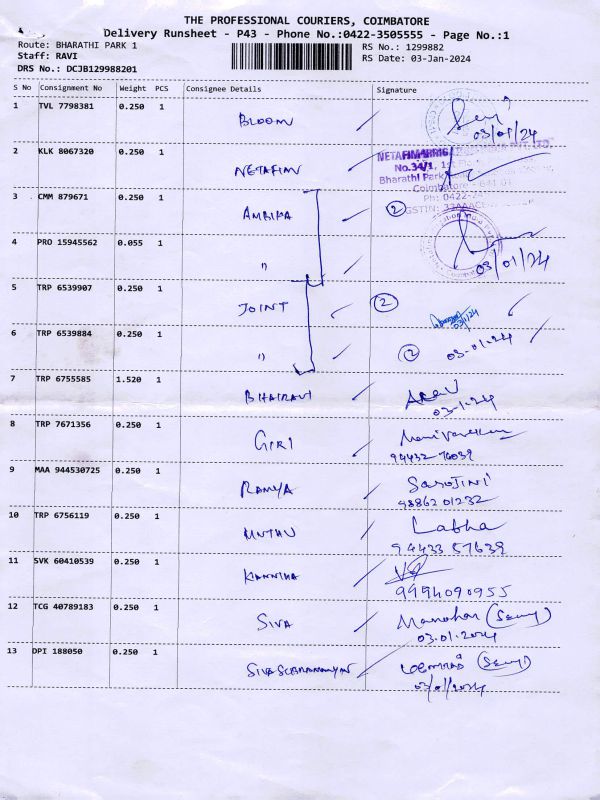 THE PROFESSIONAL COURIERS, COIMBATORE
Delivery Runsheet - P43 - Phone No.:0422-3505555 - Page No.:1
Route: BHARATHI PARK 1 RS No.: 1299882
Staff: RAVI RS Date: 03-Jan-2024
DRS No.: DCJB129988201
S No Consignment No Weight PCS Consignee Details Signature
1 TVL 7798381 0.250 1 BLOOM
03/01/24
2 KLK 8067320 0.250 1 NETAFIM
No.34/1, 1st
Bharathi Park
Coimbatore
Ph: 0422-2
GSTIN: 33AAAC
3 CMM 879671 0.250 1 AMBIKA 2
4 PRO 15945562 0.055 1 " 03/01/24
5 TRP 6539907 0.250 1 JOINT 2
6 TRP 6539884 0.250 1 " 2 03-01-24
7 TRP 6755585 1.520 1 BHAIRAVI
03-1-24
8 TRP 7671356 0.250 1 GIRI
94432 76039
9 MAA 944530725 0.250 1 RAMYA SaroJINI
98862 01232
10 TRP 6756119 0.250 1 MUTHU Labha
94433 57639
11 SVK 60410539 0.250 1 KANNIKA
9994090955
12 TCG 40789183 0.250 1 SIVA Manohar
03.01.2024
13 DPI 188050 0.250 1 SIVASUBRAMANYAN
03/01/2024